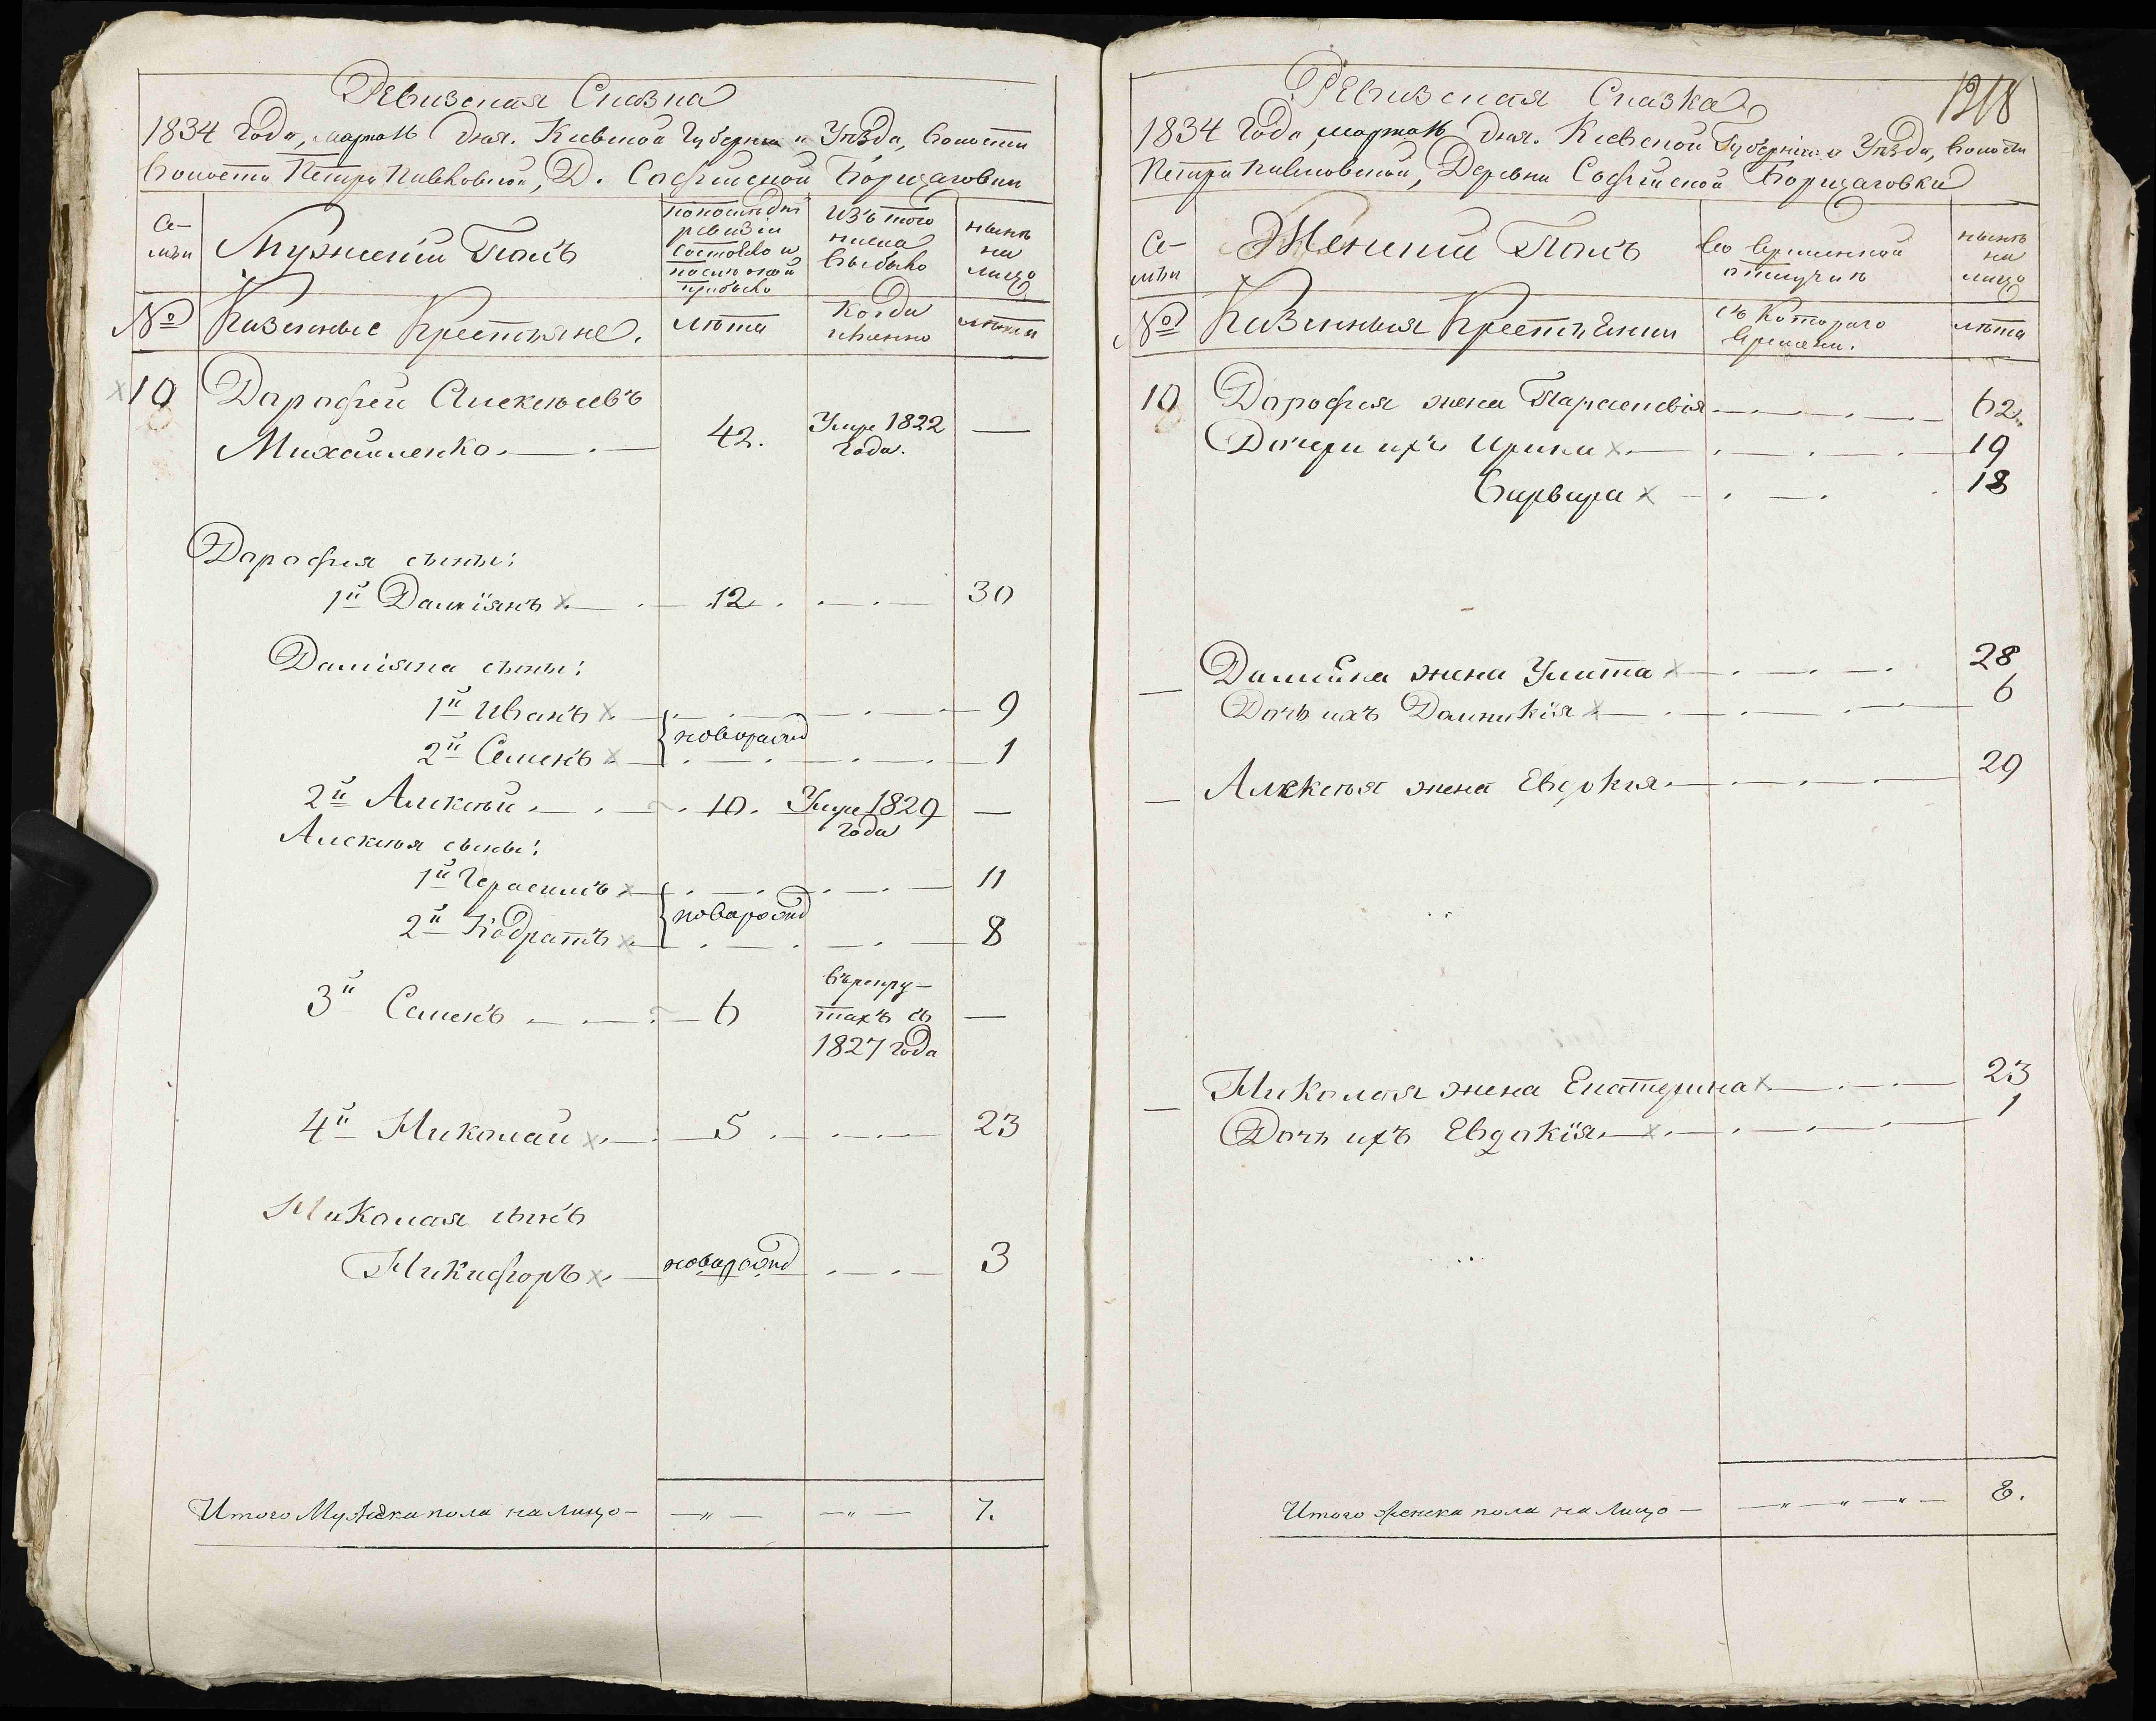 Ревизская Сказка
1834 года, марта 16 дня. Киевской Губернии и Уѣзда, волости
волости Петро Павловской, Д. Софiиской Борщаговки
Се-
мьи
Мужескiй Полъ
По послѣдней
ревизiи
состояло и
послѣ оной
прибыло
Изъ того
числа
выбыло
нынѣ
на
лицо
№
Казенные Крестьяне.
лѣта
когда
именно
лѣта
10
Дорофей Алексѣевъ
Михайленко.
42.
Умре 1822
года.
—
Дорофея сыны:
1й Дамiянъ
12
30
Дамiяна сыны:
1й Иванъ
9
новорожд
2й Семенъ
1
2й Алексѣй
10.
Умре 1829
года
—
Алексѣя сыны:
1й Герасимъ
11
новорожд
2й Кодратъ
8
3й Семенъ
6
въ рекру-
тахъ съ
1827 года
—
4й Николай
5
23
Николая сынъ
Никифоръ
новорожд
3
Итого Мужеска пола на лицо —
7.
1218
Ревизская Сказка
1834 года, марта 16 дня. Киевской Губернiи и Уѣзда, волости
Петро Павловской, Деревни Софiиской Борщаговки
Се-
мьи
Женский Полъ
Во временной
отлучкѣ
нынѣ
на
лицо
№
Казенныя Крестьянки
съ котораго
времени.
лѣта
10
Дорофея жена Параскевiя
62.
Дочери ихъ Ирина
19
Варвара
18
Дамiяна жена Улита
28
Дочь ихъ Домникiя
6
Алексѣя жена Евдокия
29
Николая жена Екатерина
23
Дочь ихъ Евдокiя
1
Итого женска пола на лицо —
8.